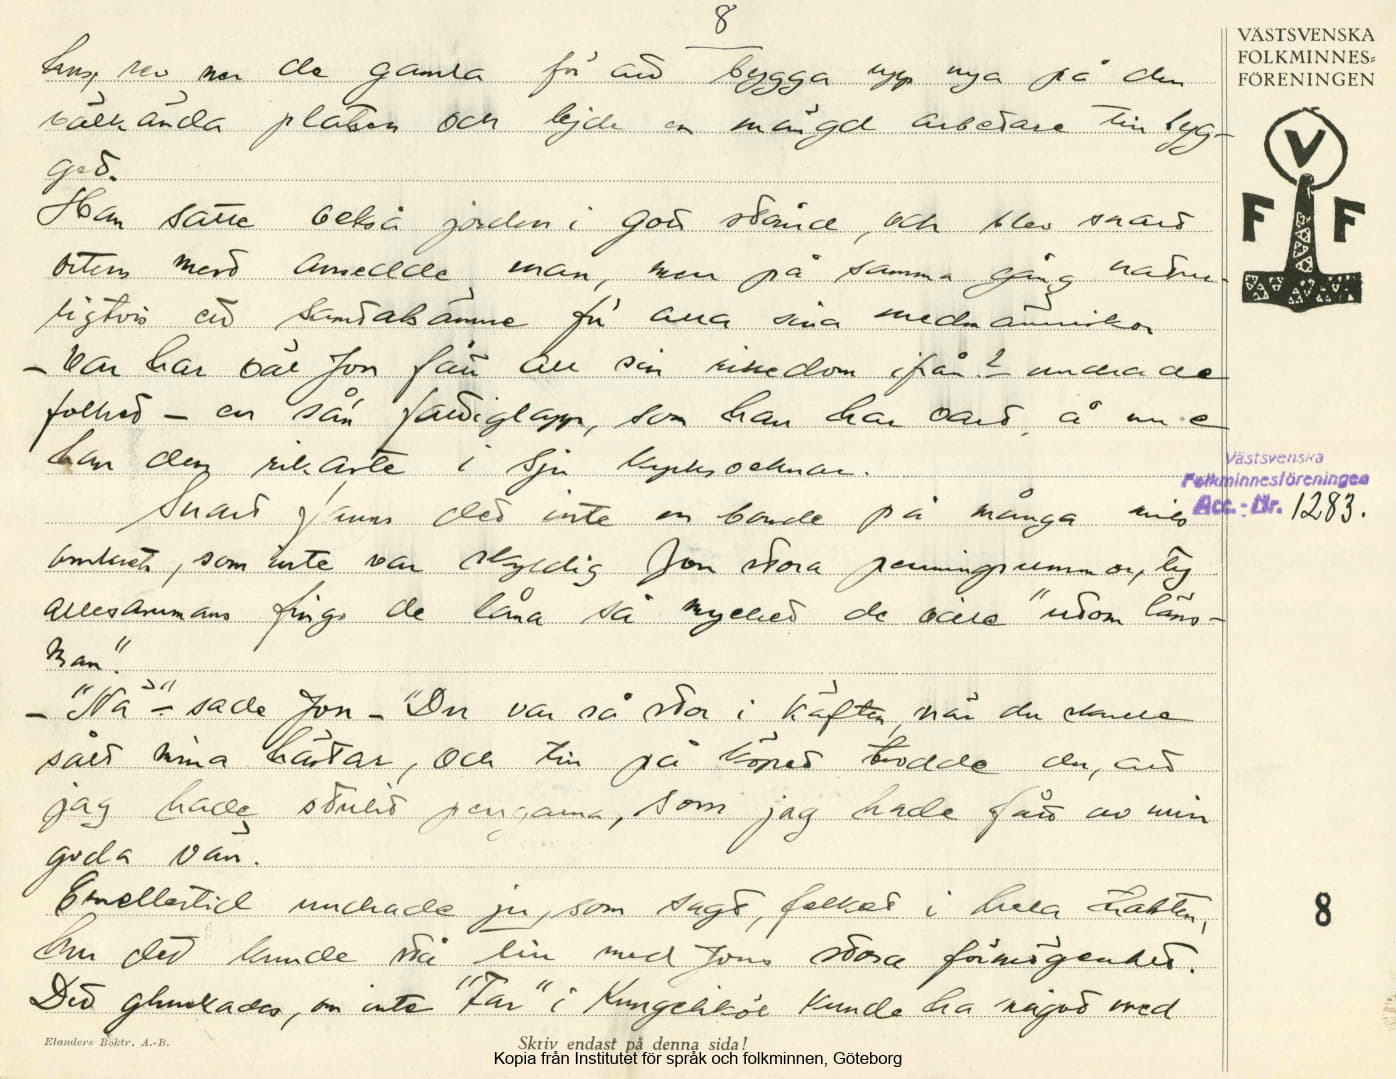 8
VÄSTSVENSKA
FOLKMINNES=
FÖRENINGEN
V
F F
hus, rev ner de gamla för att bygga upp nya på den
välkända platsen och lejde en mängd arbetare till byg-
get.
Han satte också jorden i gott stånd, och blev snart
ortens mest ansedde man, men på samma gång natur-
ligtvis ett samtalsämne för alla sina medmänniskor
– Var har väl Jon fått all sin rikedom ifrån? – undrade
folket – en sån fattiglapp, som han har vart, å nu e
han den rikaste i sju kyrksocknar.
Västsvenska
Folkminnesföreningen
Acc.-Nr. 1283.
Snart fanns det inte en bonde på många mils
omkrets, som inte var skyldig Jon stora penningsummor, ty
allesammans fingo de låna så mycket de ville "utom läns-
man".
– "Nä" – sade Jon – "Du var så stor i käften, när du skulle
sålt mina hästar, och till på köpet trodde du, att
jag hade stulit pengarna, som jag hade fått av min
goda vän.
Emellertid undrade ju, som sagt, folket i hela trakten,
hur det kunde stå till med Jons stora förmögenhet.
Det gluskades, om inte "Far" i Kungälvköl kunde ha något med
8
Elanders Boktr. A.-B.
Skriv endast på denna sida!
Kopia från Institutet för språk och folkminnen, Göteborg